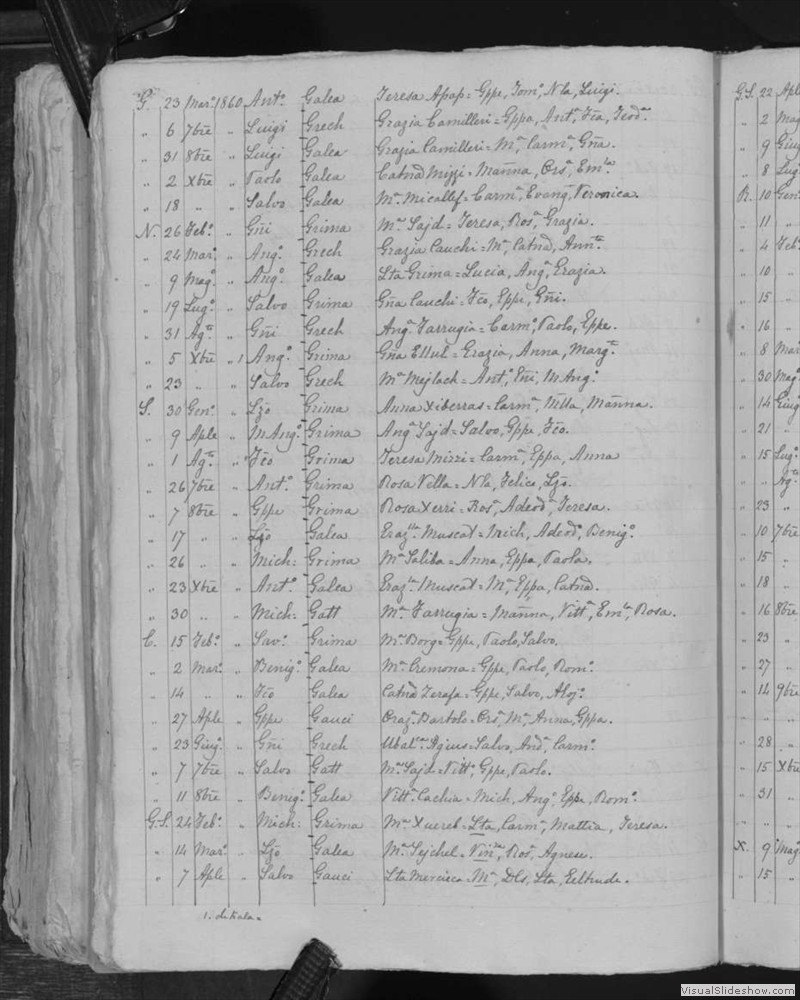 G. 23 Mar: 1860 Antº Galea Teresa Apap = Gppe, Tomº, Nla, Luigi.
„ 6 7bre „ Luigi Grech Grazia Camilleri = Gppa, Antª, Fca, Teodª
„ 31 8bre „ Luigi Galea Grazia Camilleri = Mª, Carmª, Gña.
„ 2 Xbre „ Paolo Galea Catnd Mizzi = Mãnna, Orsª, Emla
„ 18 „ „ Salvo Galea Mª Micallef = Carmª, Evangª, Veronica.
N. 26 Febº „ Gñi Grima Mª Sajd = Teresa, Rosª, Grazia.
„ 24 Mar: „ Angº Grech Grazia Cauchi = Mª, Catnd, Annta
„ 9 Magº „ Angº Galea Lta Grima = Lucia, Angª, Grazia.
„ 19 Lugº „ Salvo Grima Gña Cauchi = Fco, Eppe, Gñi.
„ 31 Agto „ Gñi Grech Angª Farrugia = Carmº, Paolo, Eppe.
„ 5 Xbre „ 1 Angº Grima Gña Ellul = Grazia, Anna, Margta
„ 23 „ „ Salvo Grech Mª Mejlach = Antº, Gñi, MAngº
S. 30 Genº „ Lzo Grima Anna Xiberras = Carmª, Nilla, Mãnna.
„ 9 Aple „ MAngº Grima Angª Sajd = Salvo, Gppe, Fco.
„ 1 Agto „ Fco Grima Teresa Mizzi = Carmª, Eppa, Anna
„ 26 7bre „ Antº Grima Rosa Vella = Nla, Felice, Lzo.
„ 7 8bre „ Gppe Grima Rosa Xerri = Rosª, Adeodª, Teresa.
„ 17 „ „ Lzo Galea Grazlla Muscat = Mich, Adeodº, Benigº
„ 26 „ „ Mich: Grima Mª Saliba = Anna, Eppa, Paola.
„ 23 Xbre „ Antº Galea Grazª Muscat = Mª, Eppa, Catnd.
„ 30 „ „ Mich: Gatt Mª Farrugia = Mãnna, Vittª, Emla, Rosa.
C. 15 Febº „ Savº Grima Mª Borg = Gppe, Paolo, Salvo.
„ 2 Mar: „ Benigº Galea Mª Cremona = Gppe, Paolo, Romº
„ 14 „ „ Fco Galea Catnd Zerafa = Gppe, Salvo, Alojº
„ 27 Aple „ Gppe Gauci Grazª Bartolo = Orsª, Mª, Anna, Gppa.
„ 23 Giugº „ Gñi Grech Ubalna Agius = Salvo, Andª, Carmº
„ 7 7bre „ Salvo Gatt Mª Sajd = Vittª, Gppe, Paolo.
„ 11 8bre „ Benigº Galea Vittª Cachia = Mich, Angº, Eppe, Romº
G.S. 24 Febº „ Mich: Grima Mª Xuereb = Lta, Carmª, Mattia, Teresa.
„ 14 Mar: „ Lzo Galea Mª Sejchel = Vinza, Rosª, Agnese.
„ 7 Aple „ Salvo Gauci Lta Mercieca = Mª, Dls, Lta, Geltrude.
1. di Kala.
G.S. 22 Aple
„ 2 Mag
„ 9 Giug
„ 8 Lug
R. 10 Genº
„ 11 „
„ 4 Febº
„ 10 „
„ 15 „
„ 16 „
„ 8 Mar
„ 30 Magº
„ 14 Giugº
„ 21 „
„ 15 Lugº
„ Agto
„ 23 „
„ 10 7bre
„ 15 „
„ 18 „
„ 16 8bre
„ 23 „
„ 27 „
„ 14 9bre
„ 28 „
„ 15 Xbre
„ 31 „
X. 9 Magº
„ 15 „
VisualSlideshow.com